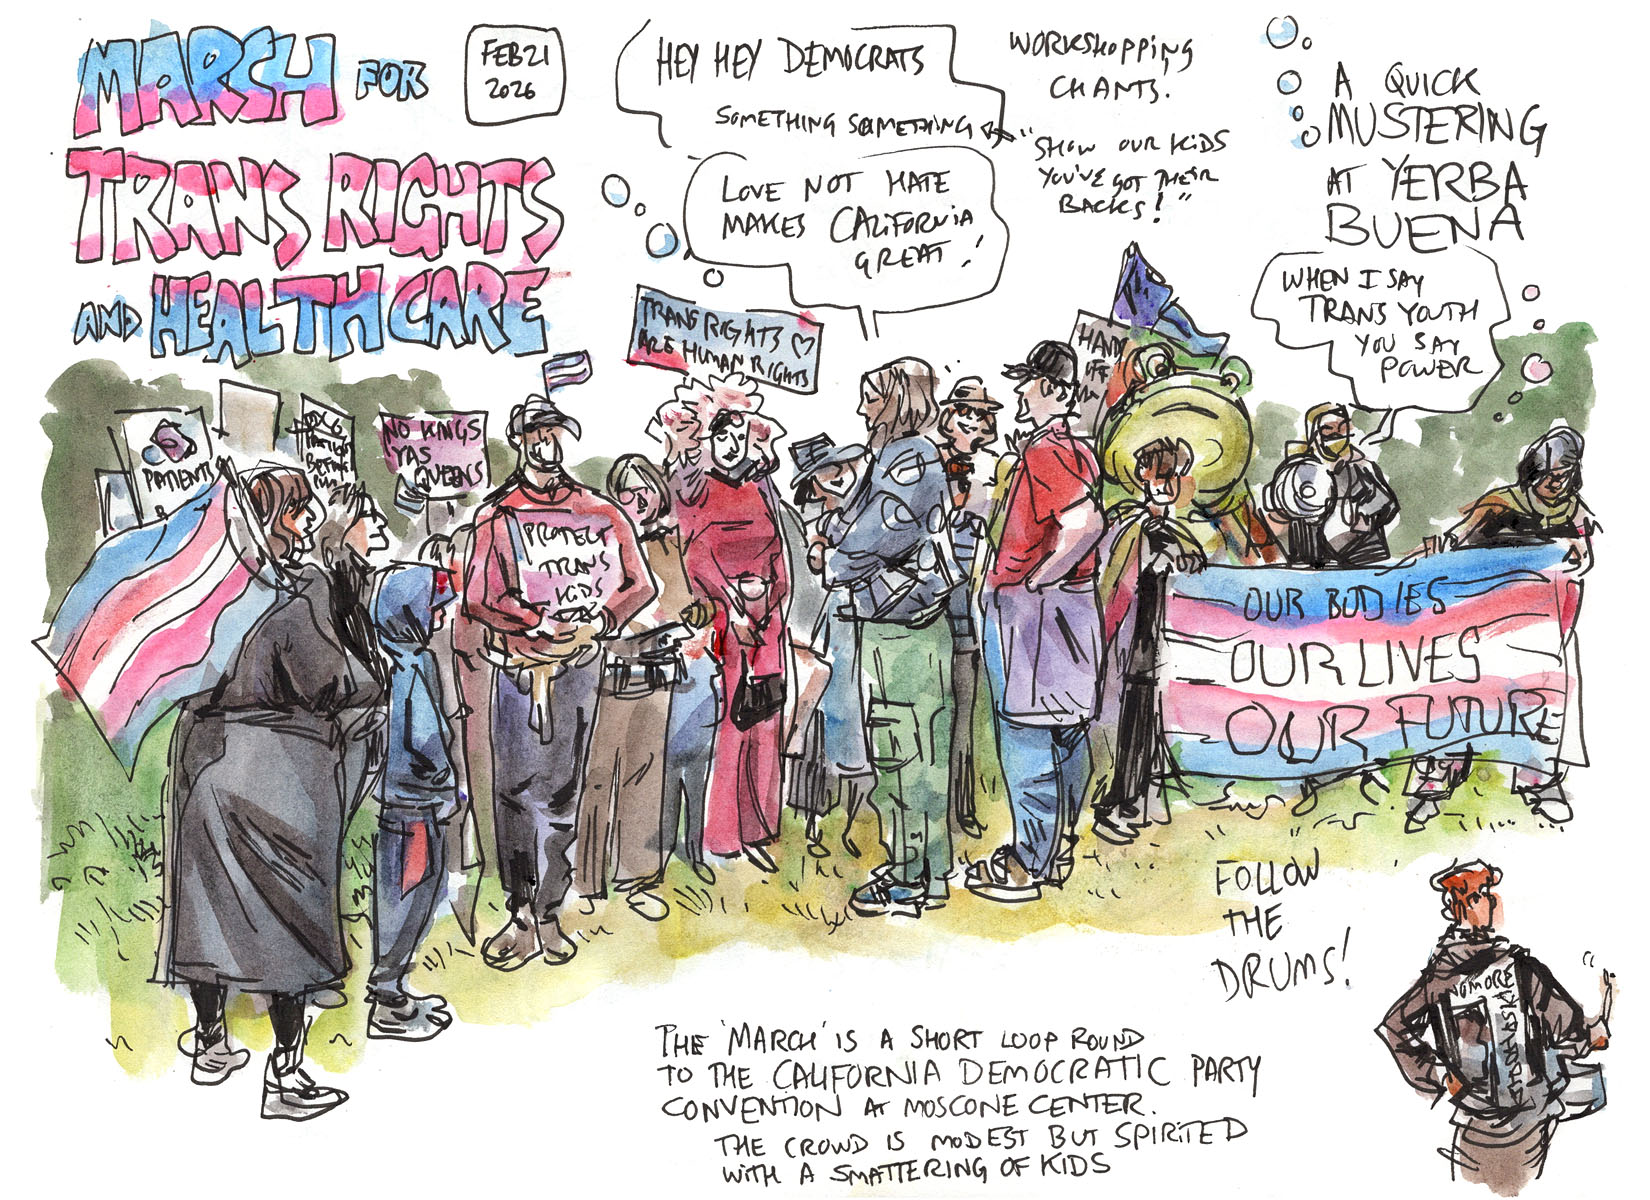 MARCH FOR
TRANS RIGHTS
AND HEALTHCARE
FEB 21
2026
HEY HEY DEMOCRATS
SOMETHING SOMETHING
WORKSHOPPING
CHANTS.
"SHOW OUR KIDS
YOU'VE GOT THEIR
BACKS!"
LOVE NOT HATE
MAKES CALIFORNIA
GREAT!
A QUICK
MUSTERING
AT YERBA
BUENA
WHEN I SAY
TRANS YOUTH
YOU SAY
POWER
TRANS RIGHTS
ARE HUMAN RIGHTS
HANDS
OFF
PATIENTS
PATIENTS
BEFORE
NO KINGS
YAS
QUEENS
PROTECT
TRANS
KIDS
OUR BODIES
OUR LIVES
OUR FUTURE
FOLLOW
THE
DRUMS!
NO MORE
THE 'MARCH' IS A SHORT LOOP ROUND
TO THE CALIFORNIA DEMOCRATIC PARTY
CONVENTION AT MOSCONE CENTER.
THE CROWD IS MODEST BUT SPIRITED
WITH A SMATTERING OF KIDS